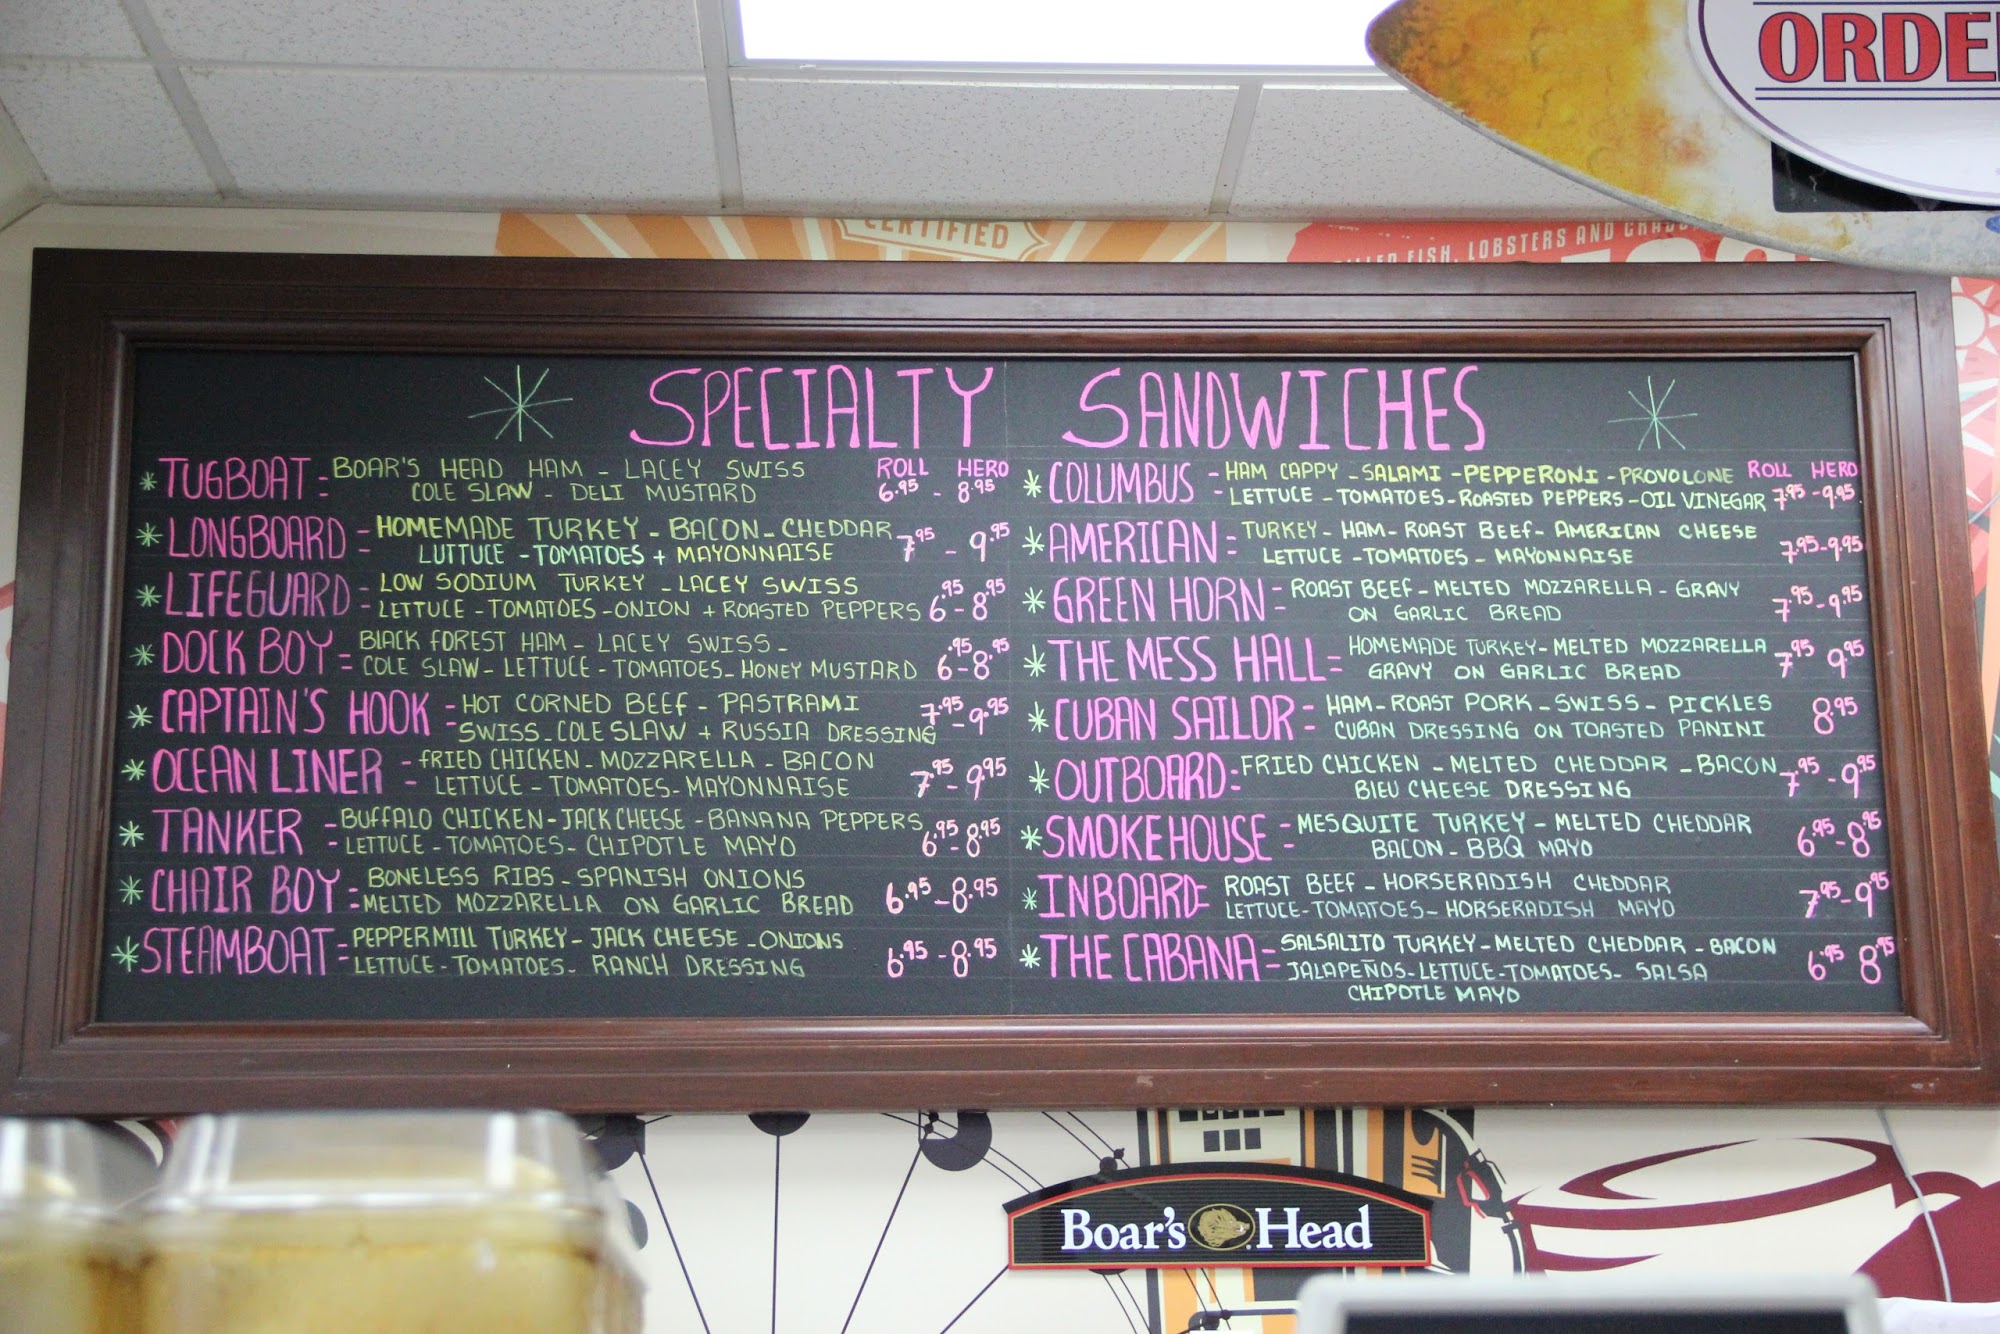 ORDE
CERTIFIED
FISH, LOBSTERS AND
SPECIALTY SANDWICHES
ROLL HERO
TUGBOAT = BOAR'S HEAD HAM - LACEY SWISS
COLE SLAW - DELI MUSTARD 6.95 - 8.95
LONGBOARD = HOMEMADE TURKEY - BACON - CHEDDAR
LUTTUCE - TOMATOES + MAYONNAISE 7.95 - 9.95
LIFEGUARD = LOW SODIUM TURKEY - LACEY SWISS
LETTUCE - TOMATOES - ONION + ROASTED PEPPERS 6.95 - 8.95
DOCK BOY = BLACK FOREST HAM - LACEY SWISS -
COLE SLAW - LETTUCE - TOMATOES - HONEY MUSTARD 6.95 - 8.95
CAPTAIN'S HOOK = HOT CORNED BEEF - PASTRAMI
SWISS - COLE SLAW + RUSSIA DRESSING 7.95 - 9.95
OCEAN LINER = FRIED CHICKEN - MOZZARELLA - BACON
LETTUCE - TOMATOES - MAYONNAISE 7.95 - 9.95
TANKER = BUFFALO CHICKEN - JACK CHEESE - BANANA PEPPERS
LETTUCE - TOMATOES - CHIPOTLE MAYO 6.95 - 8.95
CHAIR BOY = BONELESS RIBS - SPANISH ONIONS
MELTED MOZZARELLA ON GARLIC BREAD 6.95 - 8.95
STEAMBOAT = PEPPERMILL TURKEY - JACK CHEESE - ONIONS
LETTUCE - TOMATOES - RANCH DRESSING 6.95 - 8.95
COLUMBUS = HAM CAPPY - SALAMI - PEPPERONI - PROVOLONE ROLL HERO
LETTUCE - TOMATOES - ROASTED PEPPERS - OIL VINEGAR 7.95 - 9.95
AMERICAN = TURKEY - HAM - ROAST BEEF - AMERICAN CHEESE
LETTUCE - TOMATOES - MAYONNAISE 7.95 - 9.95
GREEN HORN = ROAST BEEF - MELTED MOZZARELLA - GRAVY
ON GARLIC BREAD 7.95 - 9.95
THE MESS HALL = HOMEMADE TURKEY - MELTED MOZZARELLA
GRAVY ON GARLIC BREAD 7.95 9.95
CUBAN SAILOR = HAM - ROAST PORK - SWISS - PICKLES
CUBAN DRESSING ON TOASTED PANINI 8.95
OUTBOARD = FRIED CHICKEN - MELTED CHEDDAR - BACON
BLEU CHEESE DRESSING 7.95 - 9.95
SMOKEHOUSE = MESQUITE TURKEY - MELTED CHEDDAR
BACON - BBQ MAYO 6.95 - 8.95
INBOARD = ROAST BEEF - HORSERADISH CHEDDAR
LETTUCE - TOMATOES - HORSERADISH MAYO 7.95 - 9.95
THE CABANA = SALSALITO TURKEY - MELTED CHEDDAR - BACON
JALAPEÑOS - LETTUCE - TOMATOES - SALSA 6.95 8.95
CHIPOTLE MAYO
Boar's Head